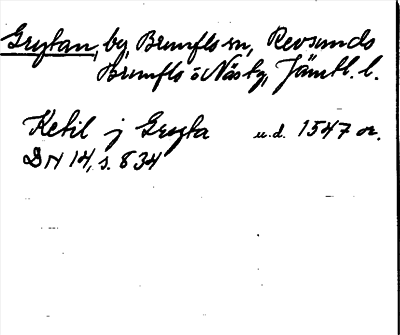 Grytan, by, Brunflo sn, Revsunds
Brunflo o Näs tg, Jämtl. l.
Ketil j Grytta u.d. 1547 or.
DN 14, s. 834